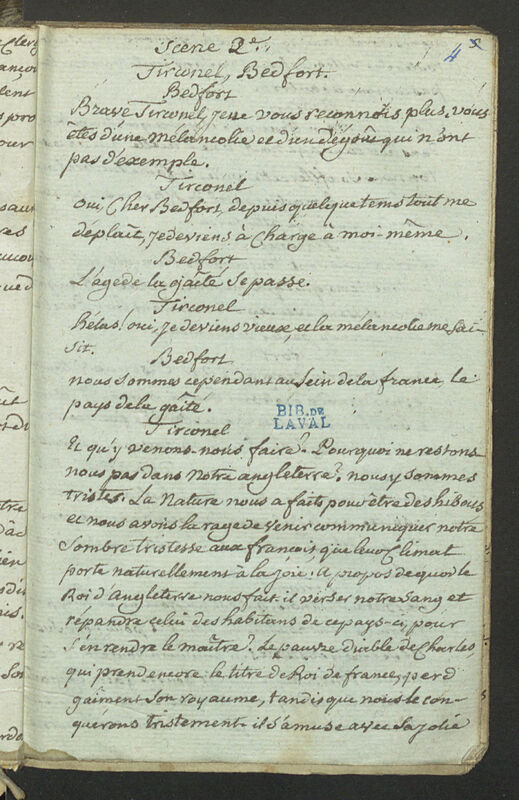 4
Scene 2e.
Tirconel, Bedfort.
Bedfort
Brave Tirconel, je ne vous reconnois plus, vous
êtes d'une mélancolie et d'un dégoût qui n'ont
pas d'exemple.
Tirconel
oui, Cher Bedfort, depuis quelque tems tout me
déplait, je deviens à Charge à moi-même.
Bedfort
L'age de la gaîté se passe.
Tirconel
hélas! oui, je deviens vieux, et la mélancolie me sai-
sit.
Bedfort
nous sommes cependant au sein de la france, le
pays de la gaîté.
Tirconel
Et qu'y venons-nous faire? Pourquoi ne restons
nous pas dans notre angleterre? nous y sommes
tristes. La Nature nous a faits pour être des hibous
et nous avons la rage de venir communiquer notre
sombre tristesse aux françois que leur Climat
porte naturellement à la joie. A propos de quoi le
Roi d'Angleterre nous fait-il verser notre sang et
répandre celui des habitans de ce pays-ci, pour
s'en rendre le maître? Le pauvre diable de Charles
qui prend encore le titre de Roi de france, perd
gaîment son royaume, tandis que nous le con-
querons tristement. il s'amuse avec sa jolie
BIB. DE
LAVAL